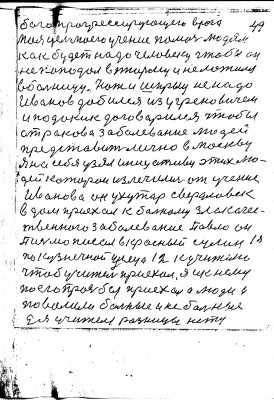 49
бого прогрессирующего врага
моя цельного учение помочь людям
как будет надо человеку чтобы он
не попадал в тюрьму и не ложился
в больницу. Нож и шприц не надо
Иванов добился изугреновичем
и подокик договорился чтобы
от ракова заболевание людей
представит лично в москву
Я на себя узял инцативу этих лю-
дей которои излечились от учение
Иванова он ухутар свердловск
в дом приехал к больному злокачес-
твенного заболевание Павло он
Письмо писал в красный сулин
по кузнечной улеца 12 к учителю
чтоб учитель приехал, я и к нему
по его прозбе приехал а люди
повалили больные и не больные
для учителя разницы нету